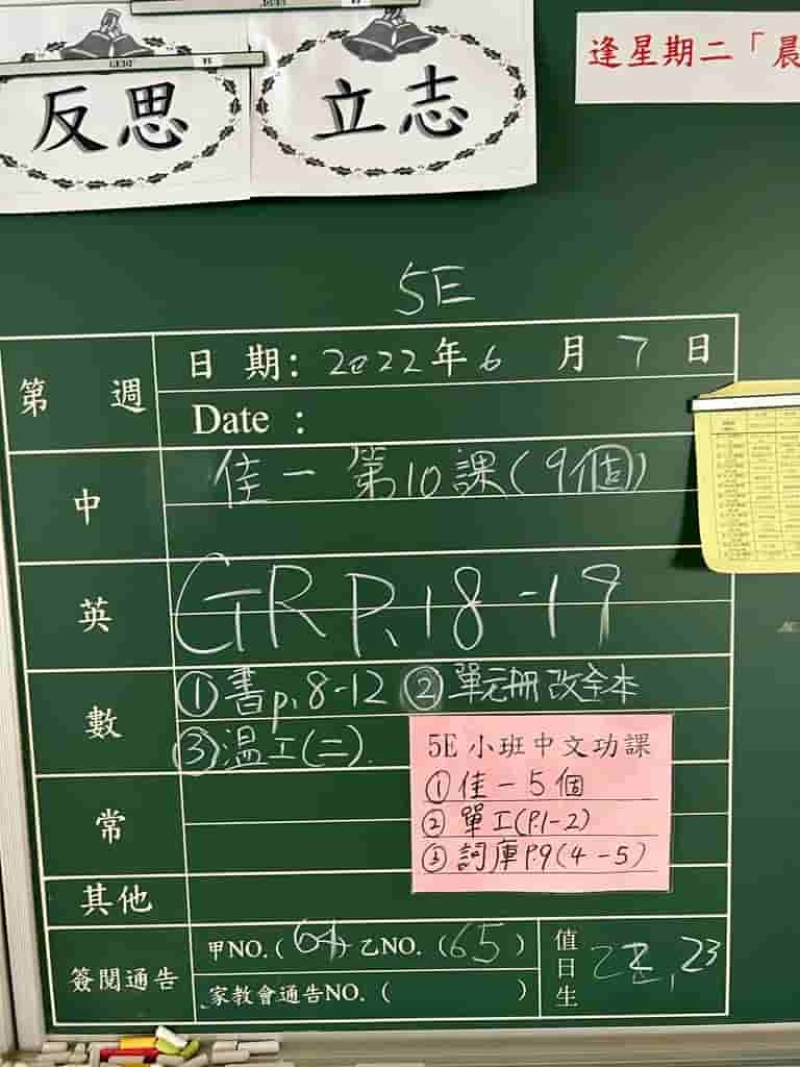 反思
立志
逢星期二「晨
5E
第 週
日 期: 2022年6 月 7 日
Date :
中
佳一 第10課(9個)
英
GR P.18-19
數
①書p.8-12 ②單元冊改全本
③溫工(二).
5E 小班中文功課
①佳一5個
②單工(P.1-2)
③詞庫P.9(4-5)
常
其他
簽閱通告
甲NO.(64) 乙NO.(65)
家教會通告NO.( )
值日生
22,23